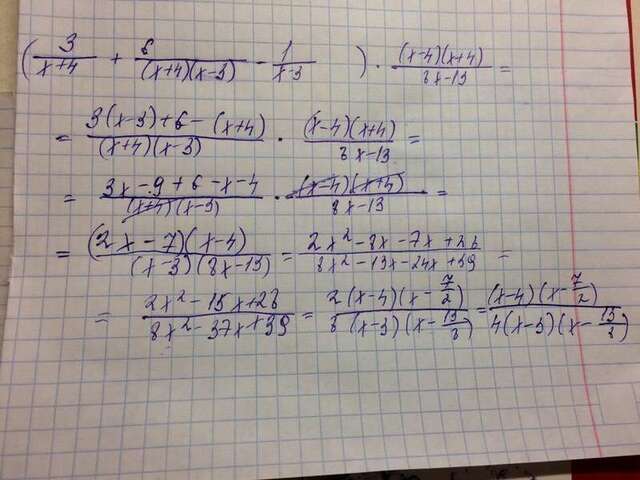 (3/(x+4) + 6/((x+4)(x-3)) - 1/(x-3)) · ((x-4)(x+4))/(8x-13) =
= (3(x-3)+6-(x+4))/((x+4)(x-3)) · ((x-4)(x+4))/(8x-13) =
= (3x-9+6-x-4)/((x+4)(x-3)) · ((x-4)(x+4))/(8x-13) =
= ((2x-7)(x-4))/((x-3)(8x-13)) = (2x²-8x-7x+28)/(8x²-13x-24x+39) =
= (2x²-15x+28)/(8x²-37x+39) = (2(x-4)(x-7/2))/(8(x-3)(x-13/8)) = ((x-4)(x-7/2))/(4(x-3)(x-13/8))